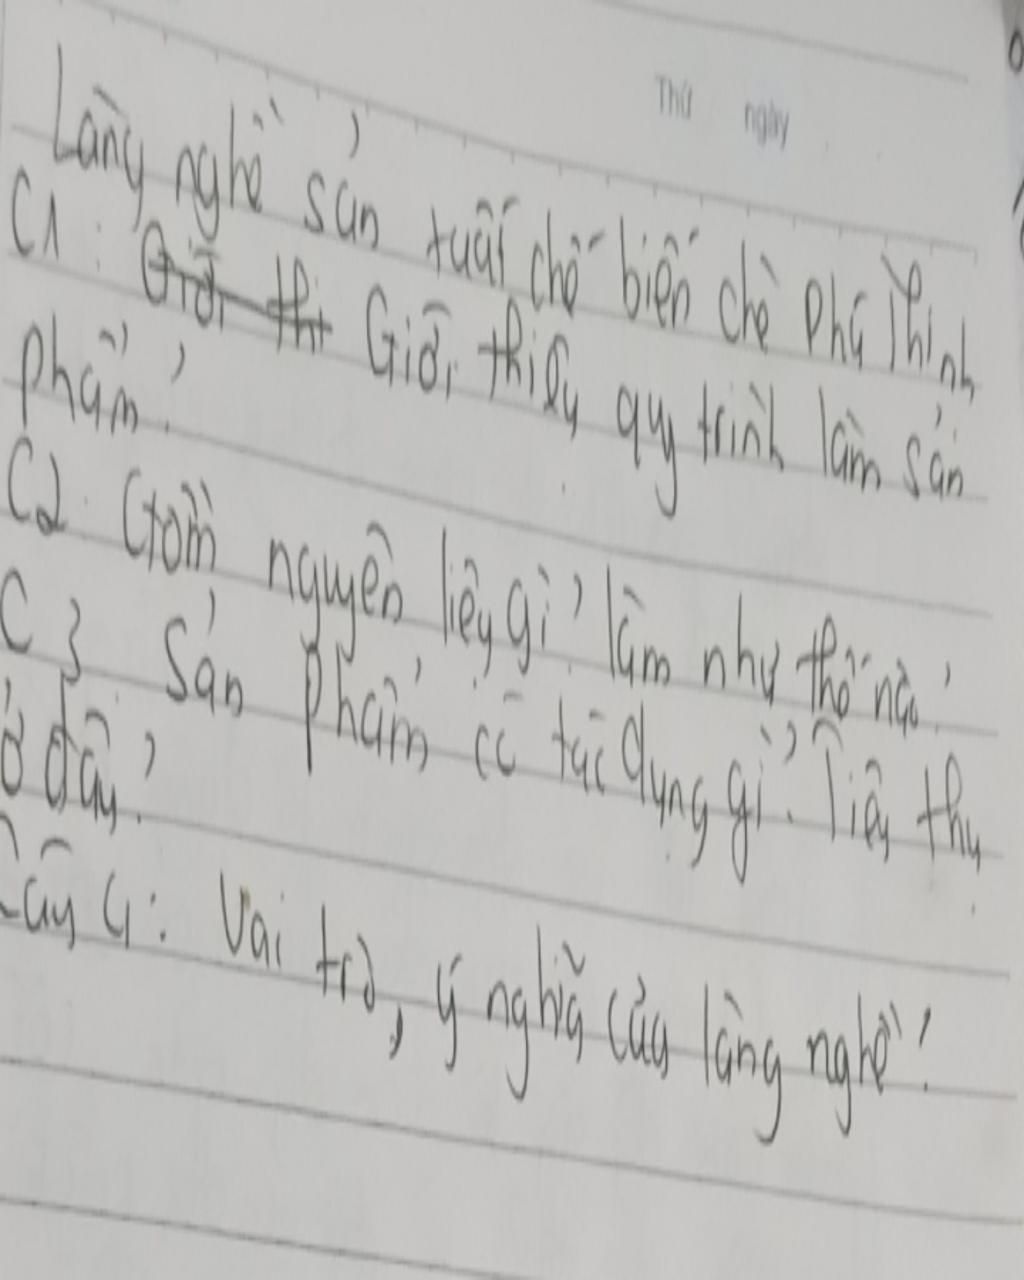 Thứ ngày
Làng nghề sản xuất chế biến chè Phú Thịnh
C1: Giới thiệu quy trình làm sản
phẩm?
C2. Gồm nguyên liệu gì? làm như thế nào?
C3 Sản phẩm có tác dụng gì? Tiêu thụ
ở đâu?
Câu 4: Vai trò, ý nghĩa của làng nghề?